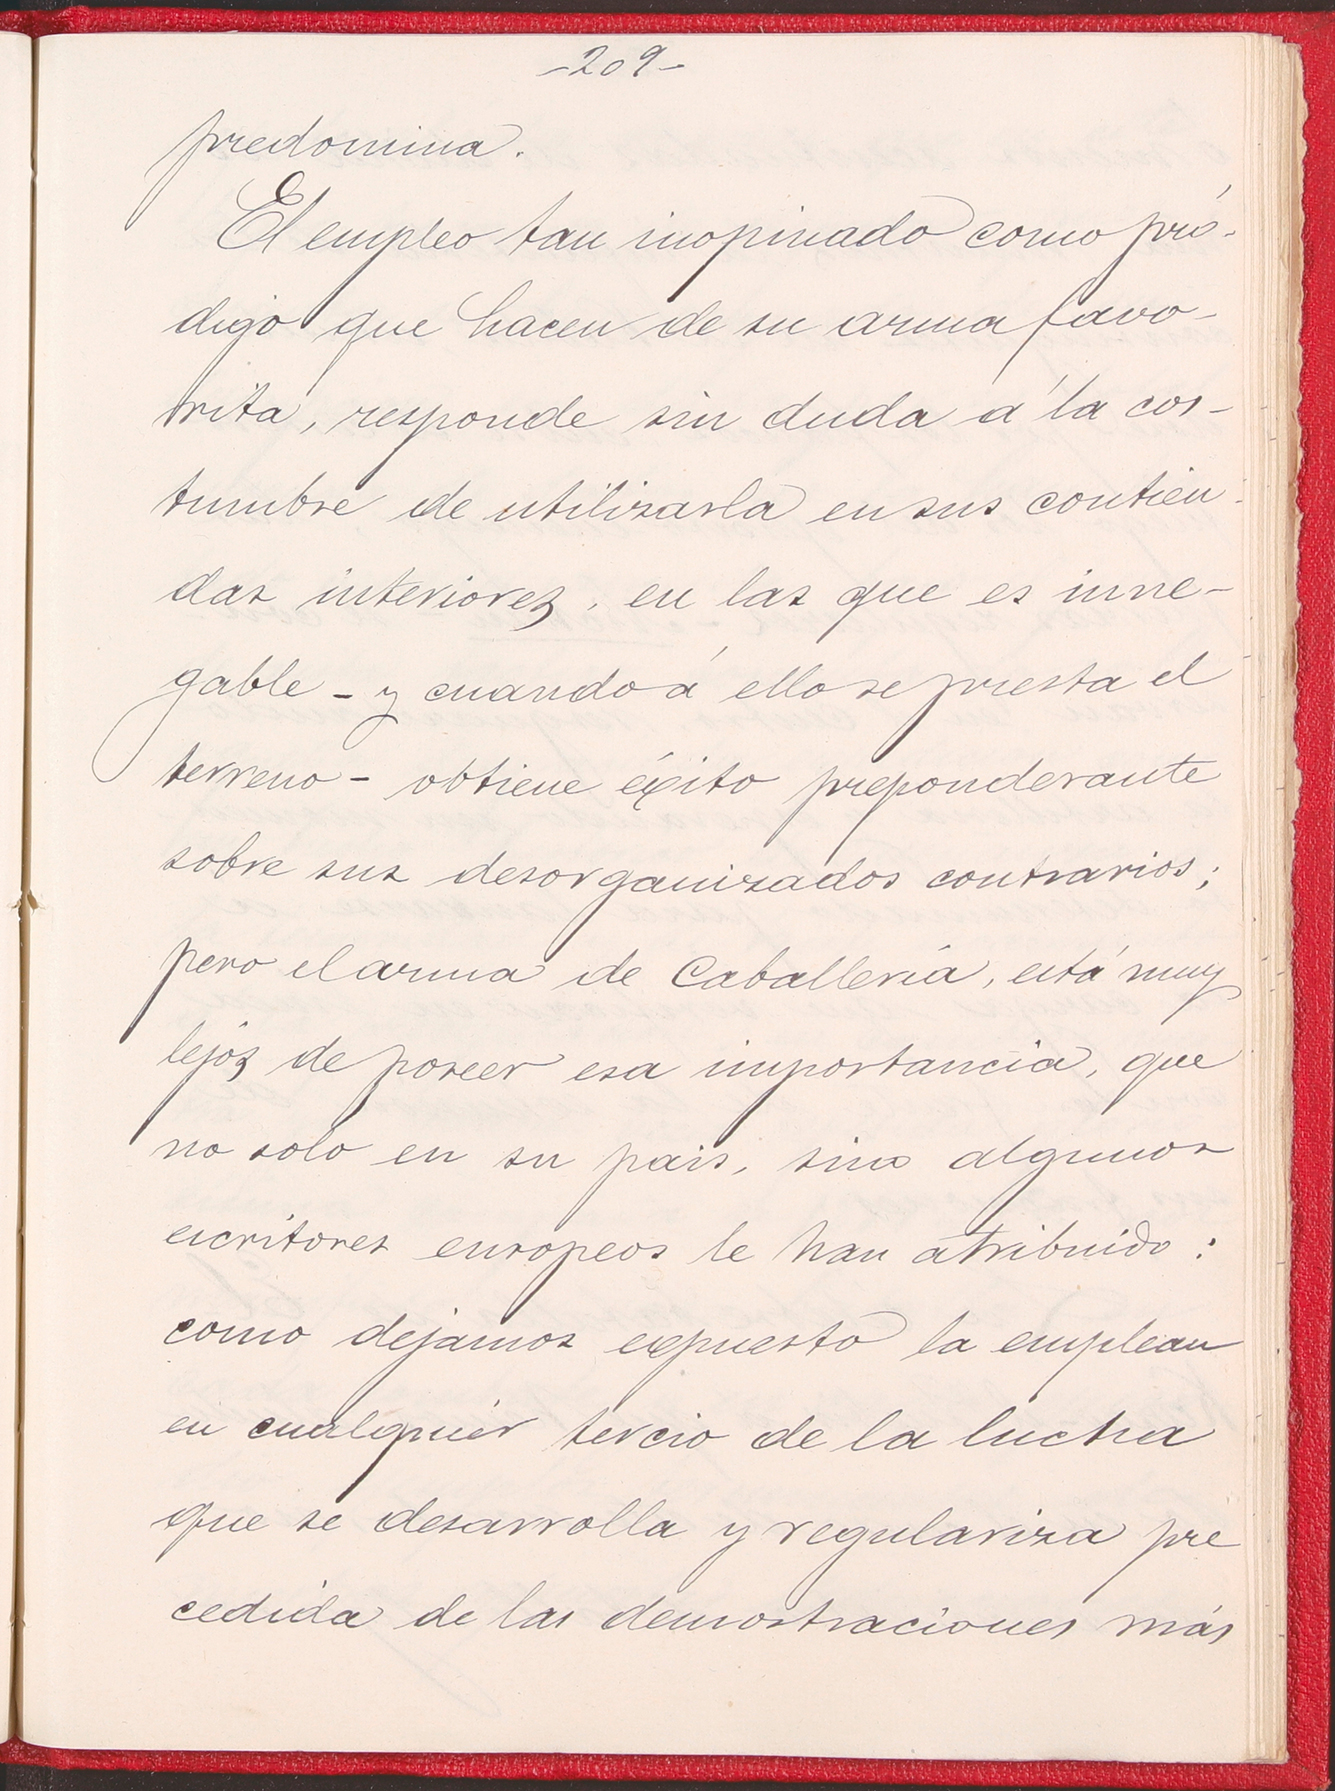 -209-
predomina.
El empleo tan inopinado como pró-
digo que hacen de su arma favo-
rita, responde sin duda á la cos-
tumbre de utilizarla en sus contien-
das interiores, en las que es inne-
gable - y cuando á ello se presta el
terreno - obtiene éxito preponderante
sobre sus desorganizados contrarios;
pero el arma de Caballería, está muy
lejos de poseer esa importancia, que
no solo en su pais, sino algunos
escritores europeos le han atribuido:
como dejamos expuesto la emplean
en cualquier tercio de la lucha
que se desarrolla y regulariza pre
cedida de las demostraciones más